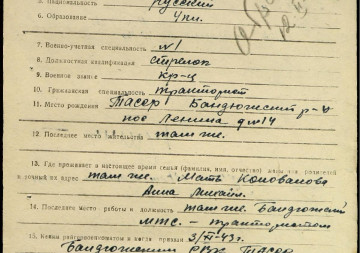 5. Национальность русский
6. Образование 4 кл.
7. Военно-учетная специальность №1
8. Должностная квалификация стрелок
9. Военное звание кр-ц
10. Гражданская специальность тракторист
11. Место рождения Тасер Бандюжский р-н
пос Ленина д №14
12. Последнее место жительства там же.
13. Где проживает в настоящее время семья (фамилия, имя, отчество)
и точный их адрес там же. Мать Коновалова
Анна
14. Последнее место работы и должность там же. Бандюжский
МТС. - трактористом
15. Каким райвоенкоматом и когда призван 5/XI-43г.
Бандюжским РВК ТАССР